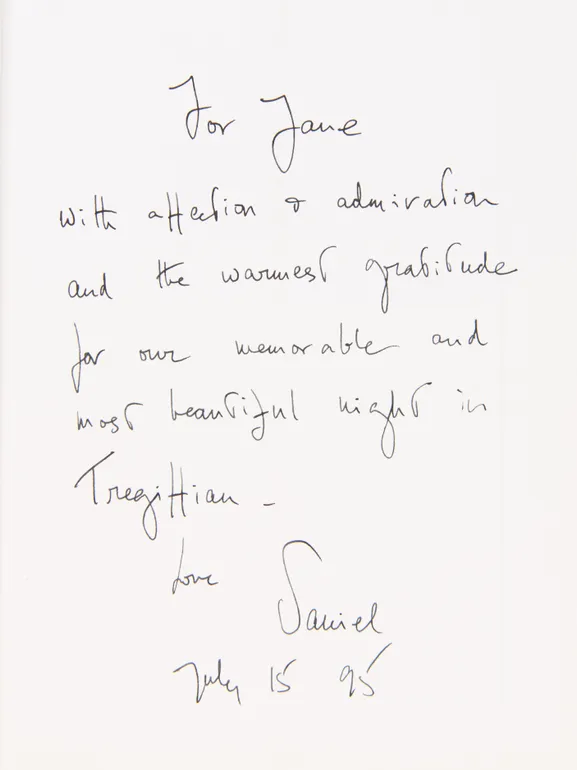 For Jane
with affection & admiration
and the warmest gratitude
for our memorable and
most beautiful night in
Tregittian -
Love Daniel
July 15 95